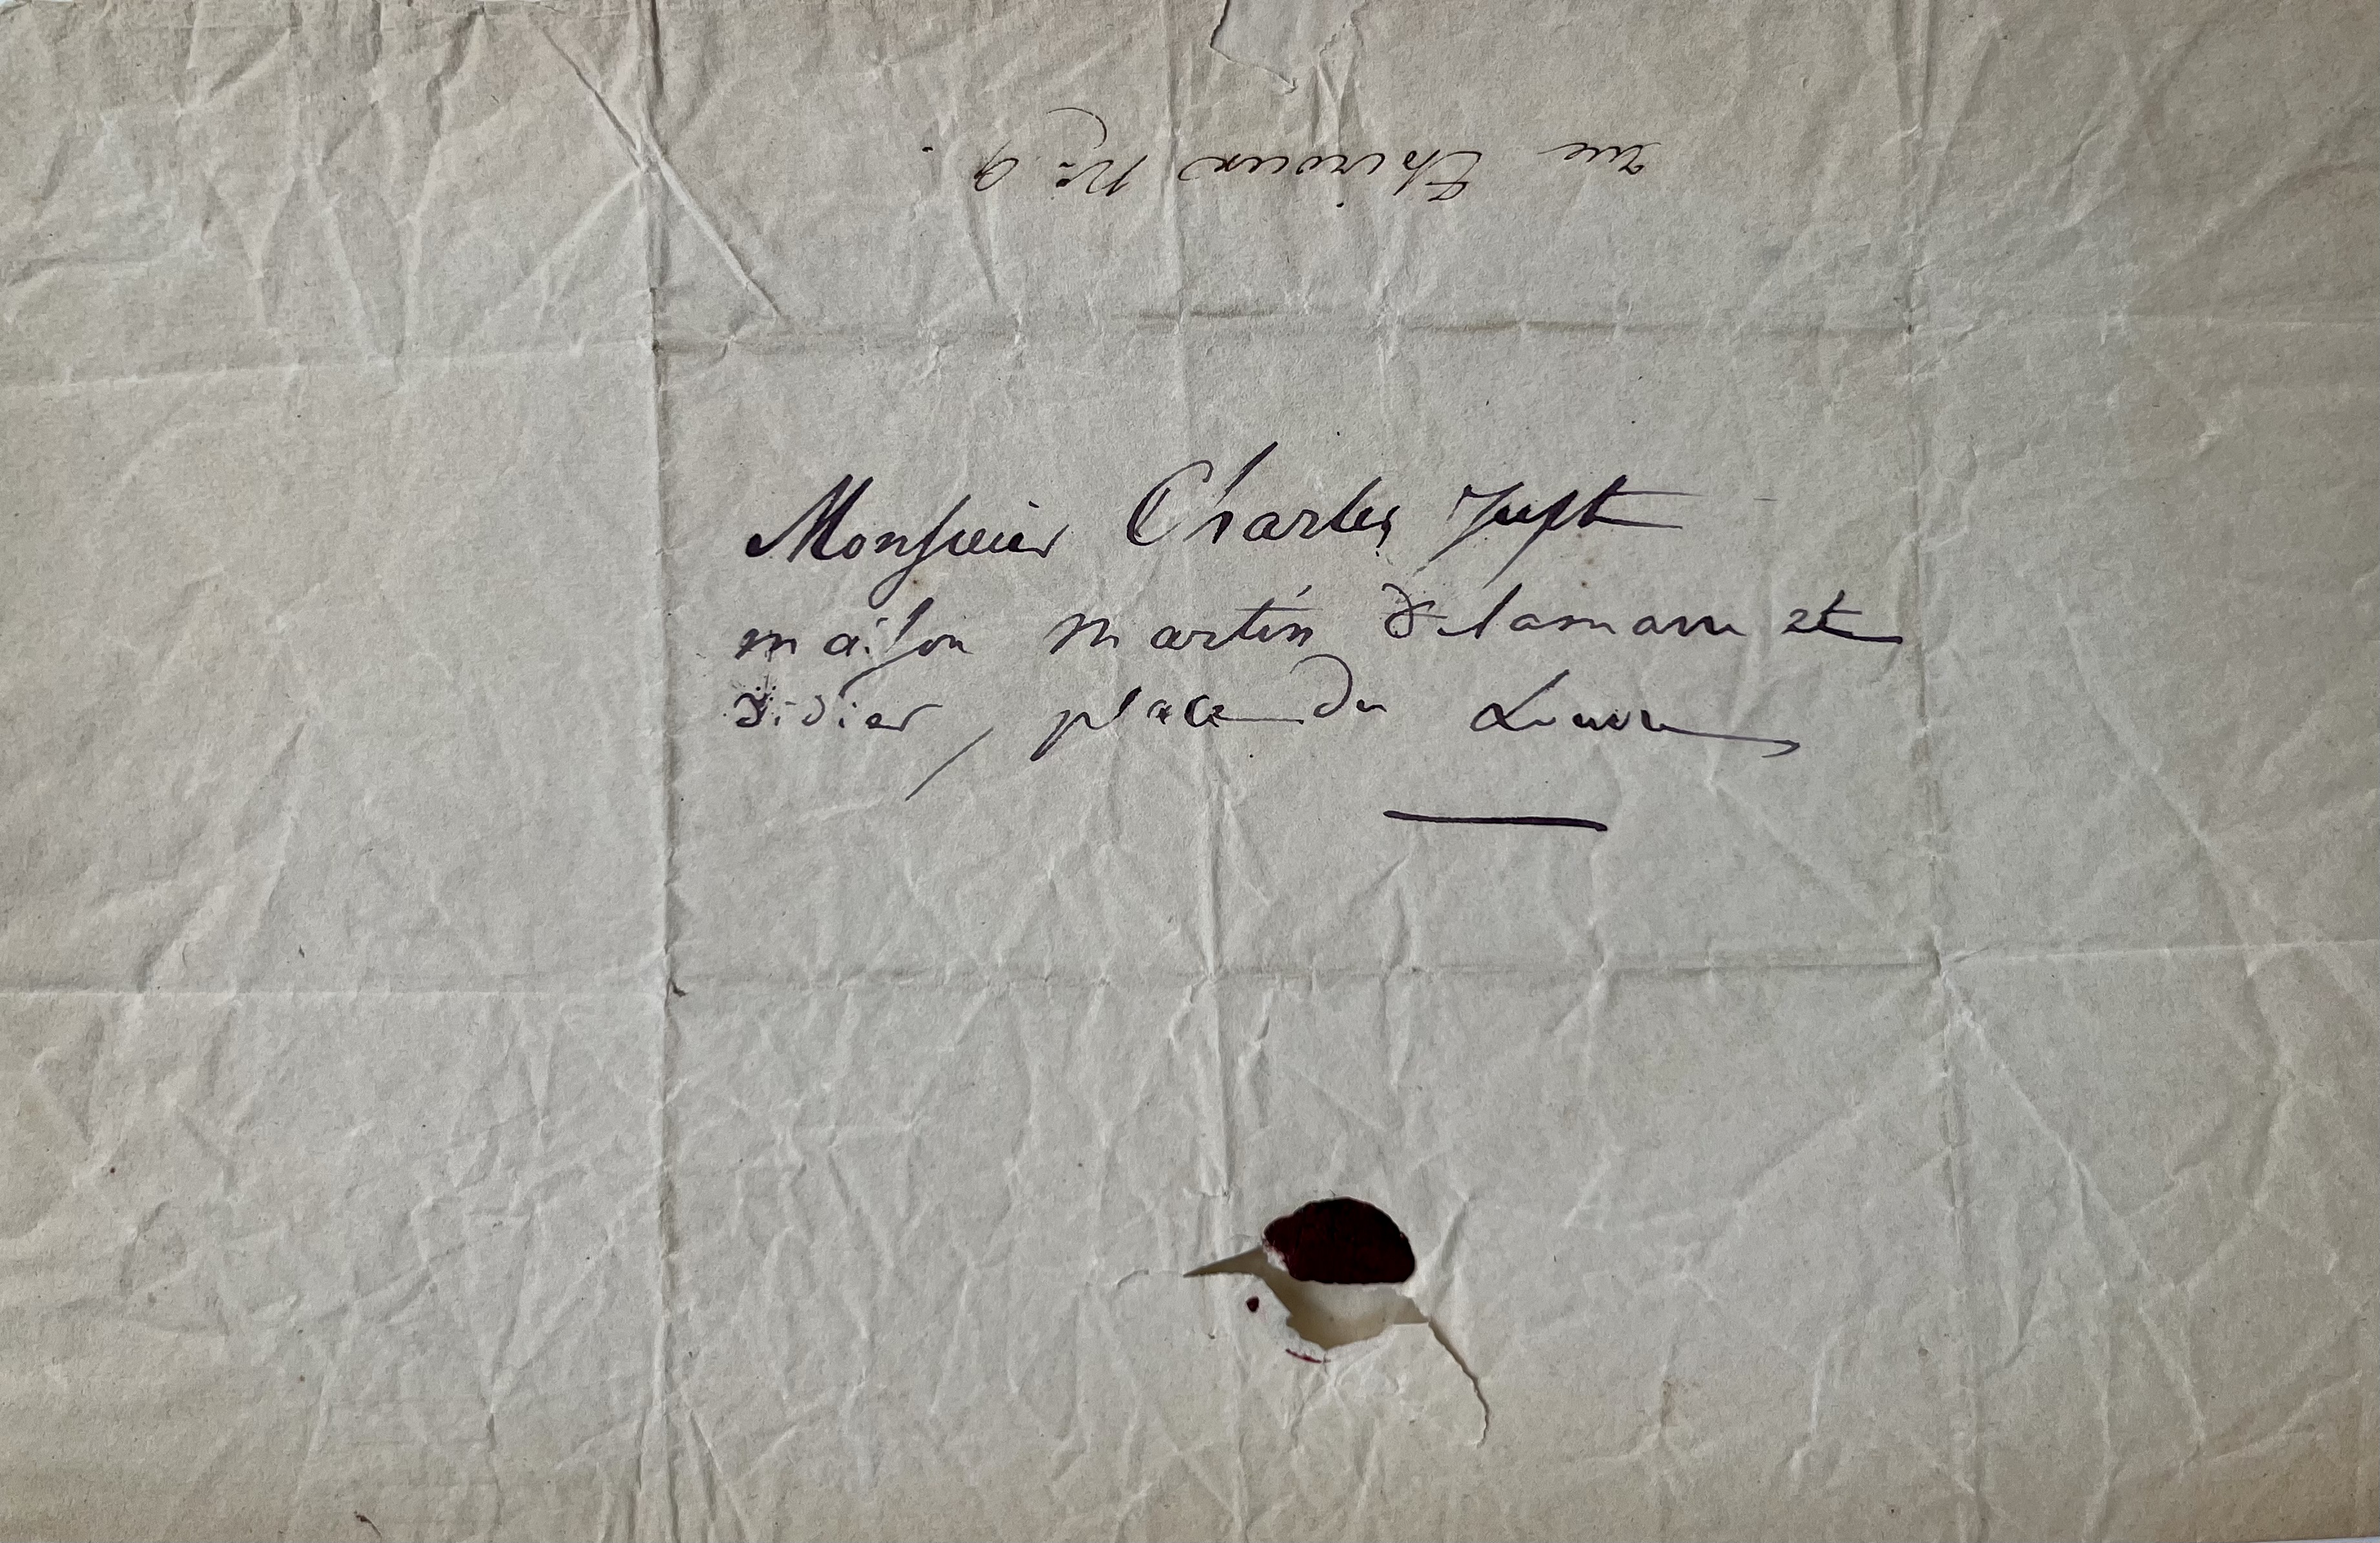 rue Thiroux N° 9.
Monsieur Charles Just
maison Martin Delamarre et
Didier, place du Louvre